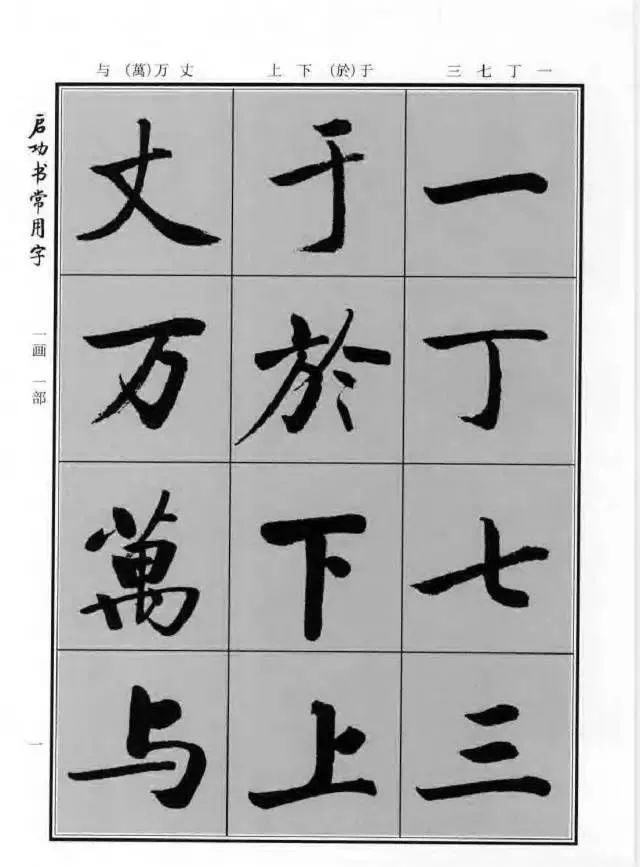 一丁七三
于(於)下上
丈万(萬)与
一丁七三
于於下上
丈万萬与
启功书常用字
一画 一部
一